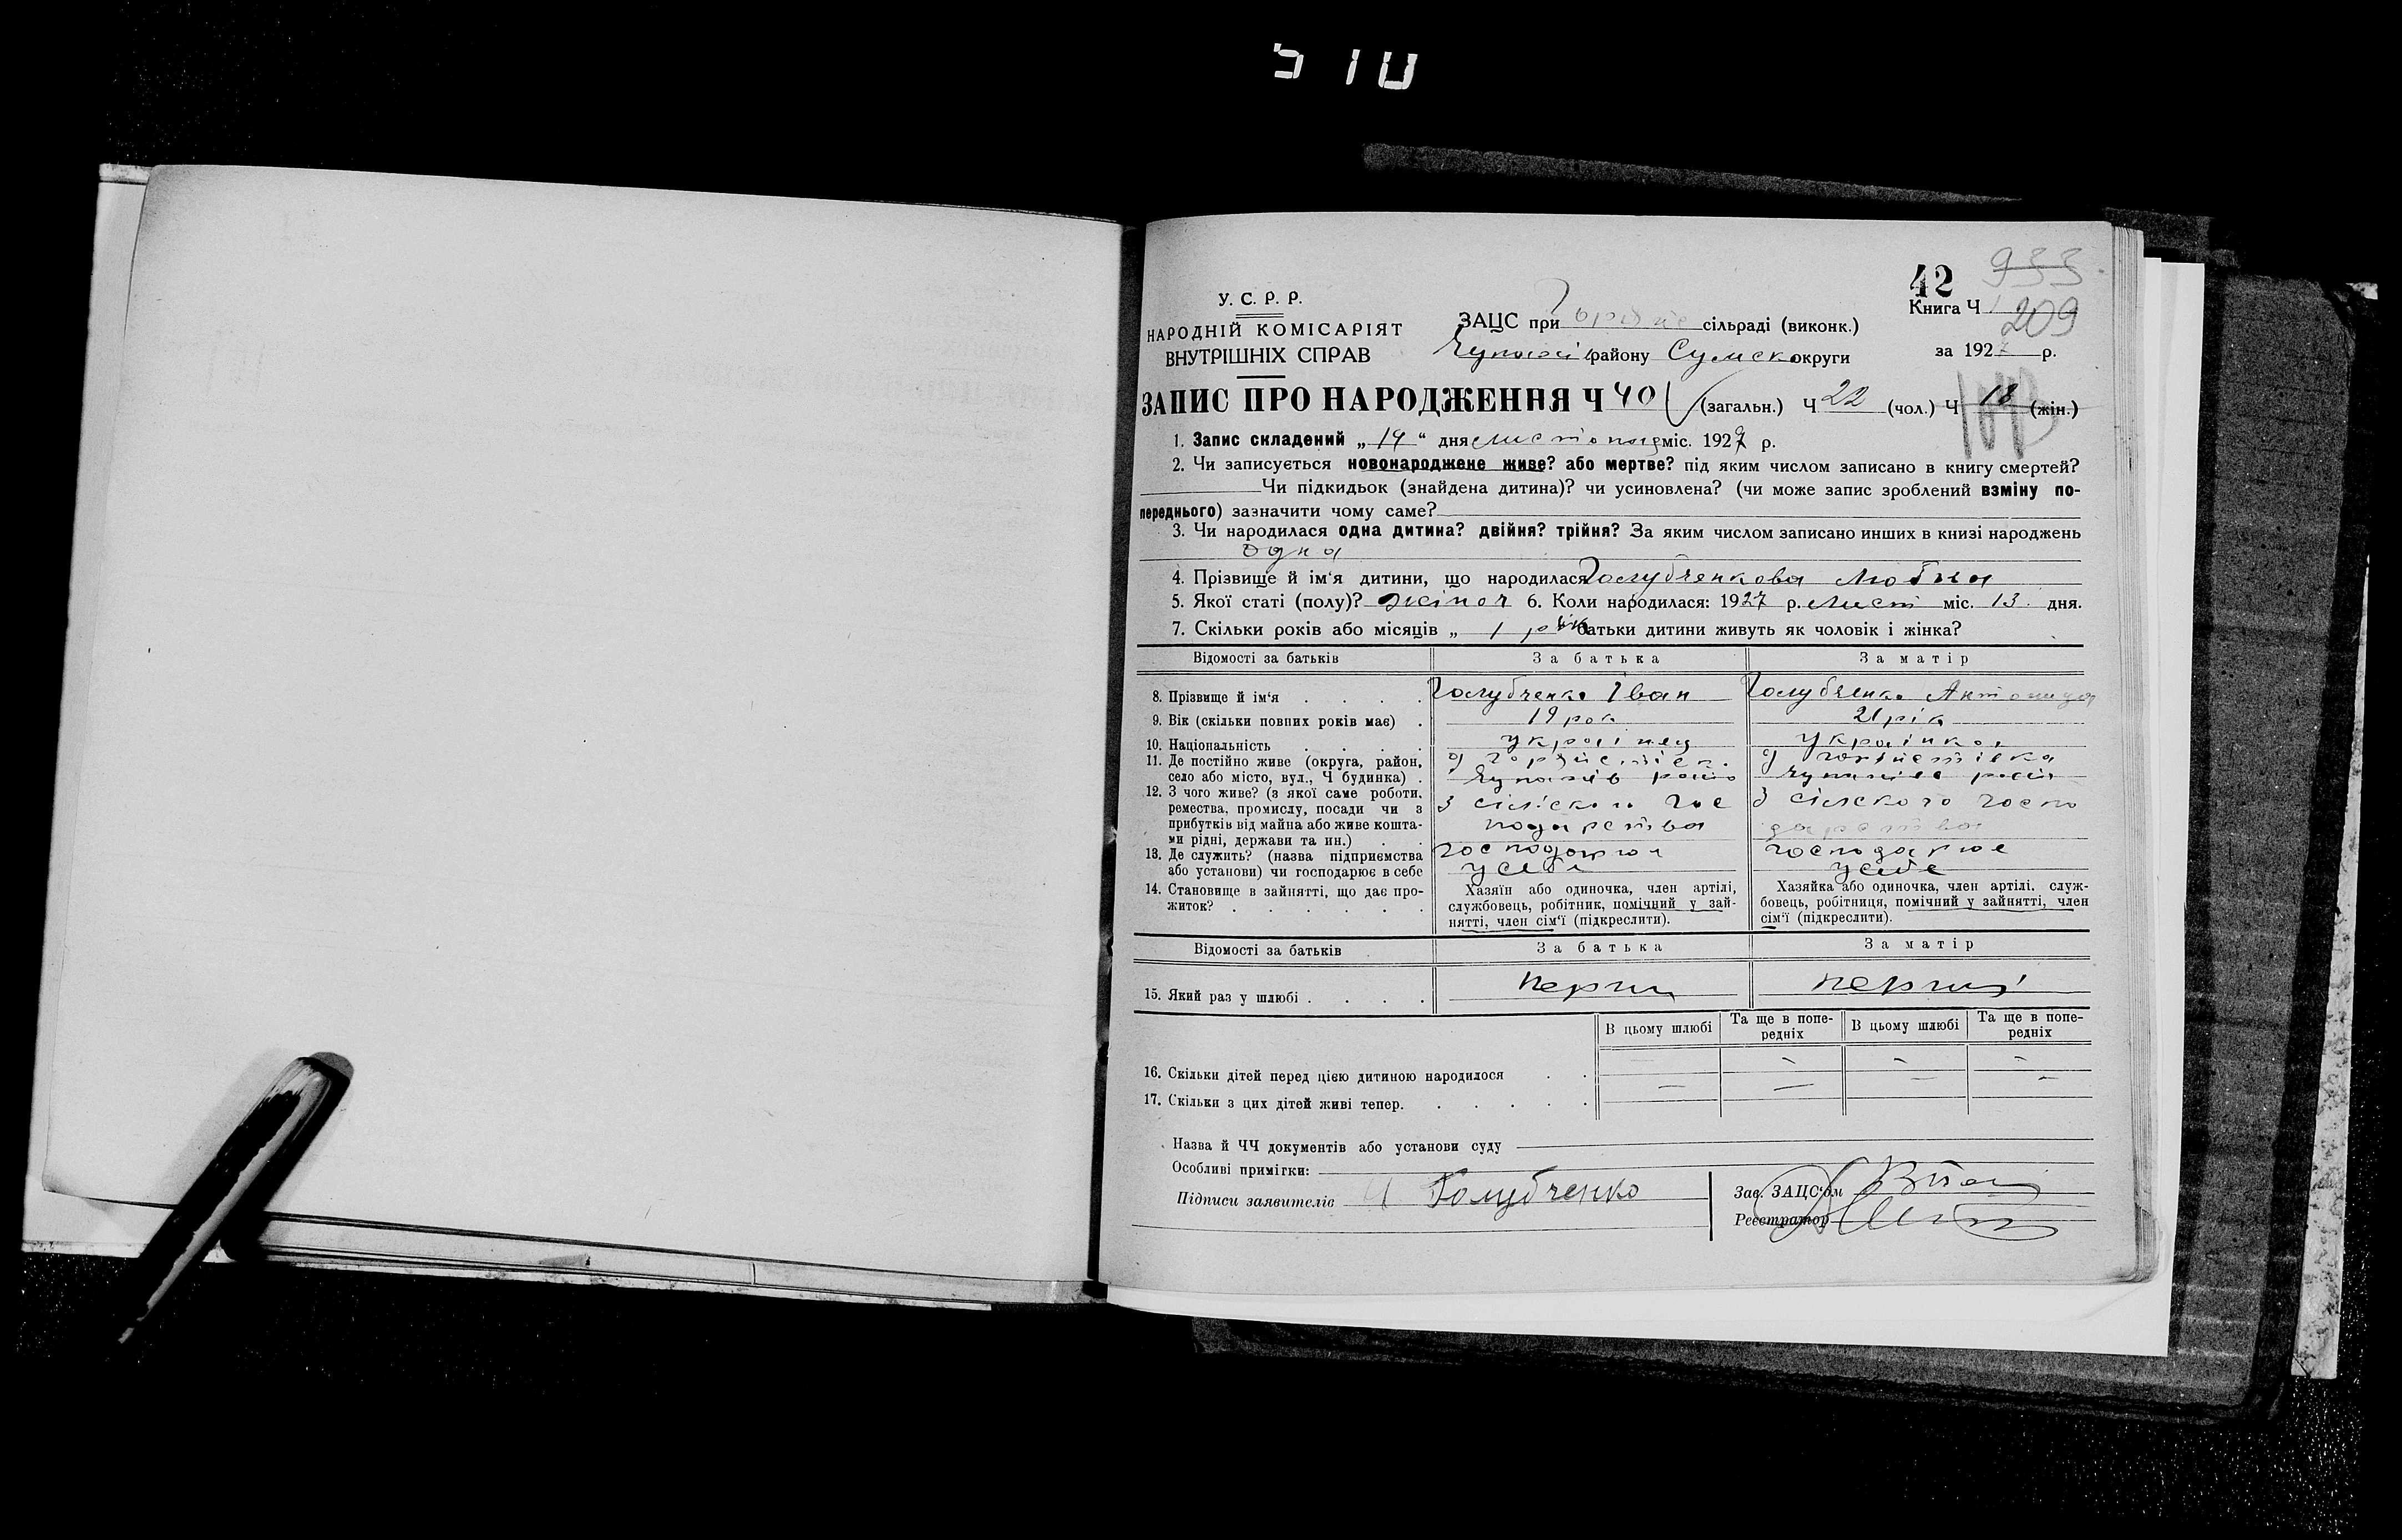 510
42 933
У. С. Р. Р.
Книга Ч 209
НАРОДНІЙ КОМІСАРІЯТ
ВНУТРІШНІХ СПРАВ
ЗАЦС при сільраді (виконк.)
району Сумско округи
за 1927 р.
ЗАПИС ПРО НАРОДЖЕННЯ Ч 40 (загальн.) Ч 22 (чол.) Ч 18 (жін.)
1. Запис складений „ 14 “ дня листопад міс. 1927 р.
2. Чи записується новонароджене живе? або мертве? під яким числом записано в книгу смертей?
Чи підкидьок (знайдена дитина)? чи усиновлена? (чи може запис зроблений взміну по-
переднього) зазначити чому саме?
3. Чи народилася одна дитина? двійня? трійня? За яким числом записано инших в книзі народжень
одна
4. Прізвище й ім‘я дитини, що народилася Голубченкова Любка
5. Якої статі (полу)? жіноч 6. Коли народилася: 1927 р. лист міс. 13 дня.
7. Скільки років або місяців „ 1 рік батьки дитини живуть як чоловік і жінка?
Відомості за батьків За батька За матір
8. Прізвище й ім‘я . . . . Голубченко Іван Голубченко Антонида
9. Вік (скільки повних років має) . 19 рок 21 рік
10. Національність . . . . українец українка
11. Де постійно живе (округа, район,
село або місто, вул., Ч будинка) .
12. З чого живе? (з якої саме роботи, З сільского гос З сілского госпо
ремества, промислу, посади чи з
прибутків від майна або живе кошта- подарства дарства
ми рідні, держави та ин.) . .
13. Де служить? (назва підприємства господарює господарює
або установи) чи господарює в себе у себе у себе
14. Становище в зайнятті, що дає про-
житок? . . . . . .
Хазяїн або одиночка, член артілі,
службовець, робітник, помічний у зай-
нятті, член сім‘ї (підкреслити).
Хазяйка або одиночка, член артілі, служ-
бовець, робітниця, помічний у зайнятті, член
сім‘ї (підкреслити).
Відомості за батьків За батька За матір
15. Який раз у шлюбі . . . . перши перший
В цьому шлюбі Та ще в попе-
редніх В цьому шлюбі Та ще в попе-
редніх
16. Скільки дітей перед цією дитиною народилося . . - - -
17. Скільки з цих дітей живі тепер. . . . . . - - - -
Назва й ЧЧ документів або установи суду
Особливі примігки:
Підписи заявителів Голубченко
Зав. ЗАЦС‘ом
Реєстратор